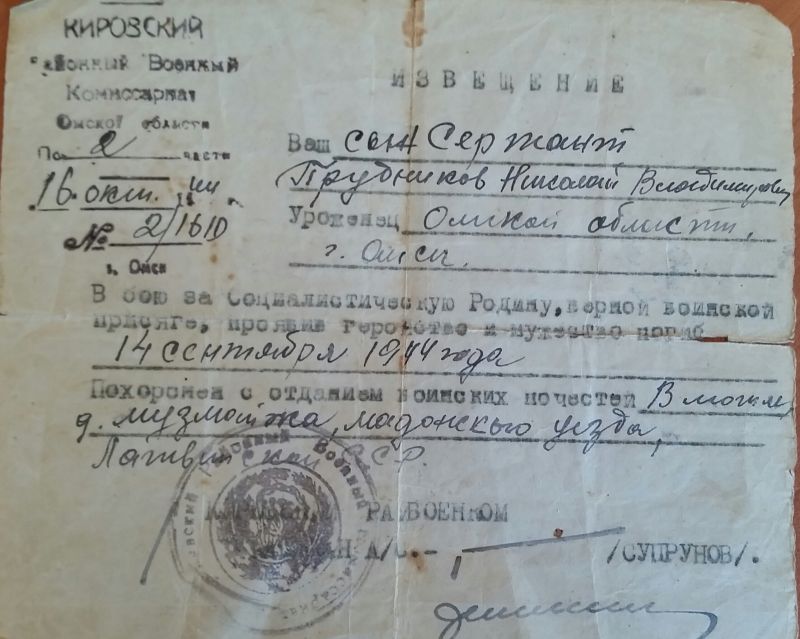 КИРОВСКИЙ
Районный Военный
Комиссариат
Омской области
По 2 части
16 окт. 44
№ 2/1610
г. Омск
ИЗВЕЩЕНИЕ
Ваш сын Сержант
Трубников Николай Владимирович
Уроженец Омской области,
г. Омск.
В бою за Социалистическую Родину, верной воинской
присяге, проявив геройство и мужество погиб
14 сентября 1944 года
Похоронен с отданием воинских почестей В могиле
д. Музмайжа, мадонского уезда,
Латвийской ССР.
КИРОВСКИЙ РАЙВОЕНКОМ
А/С.- /СУПРУНОВ/.